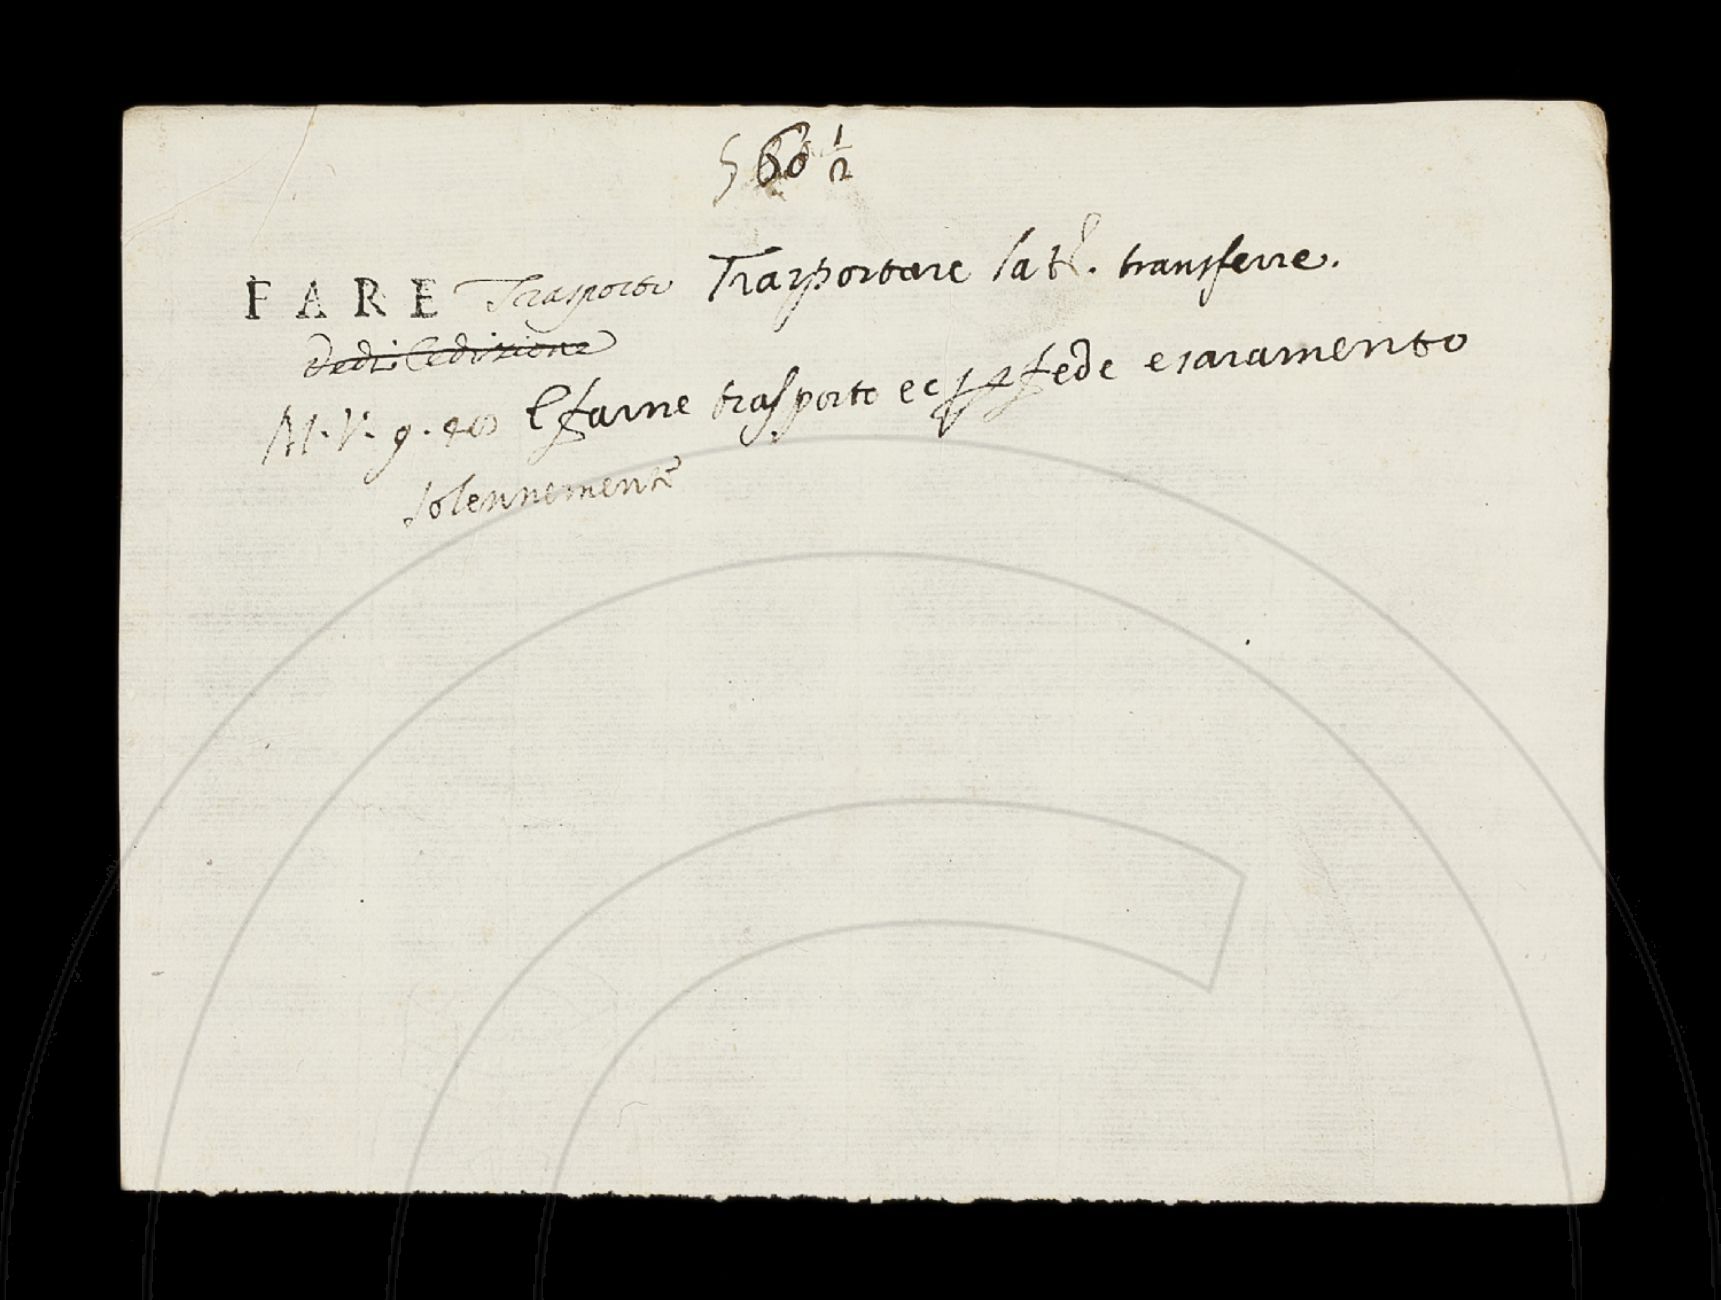 560 1/2
FARE Trasporto Trasportare lat. transferre.
Vedi Cedizione
M. V. 9. 40 E farne trasporto ec fede e saramento
solennemente